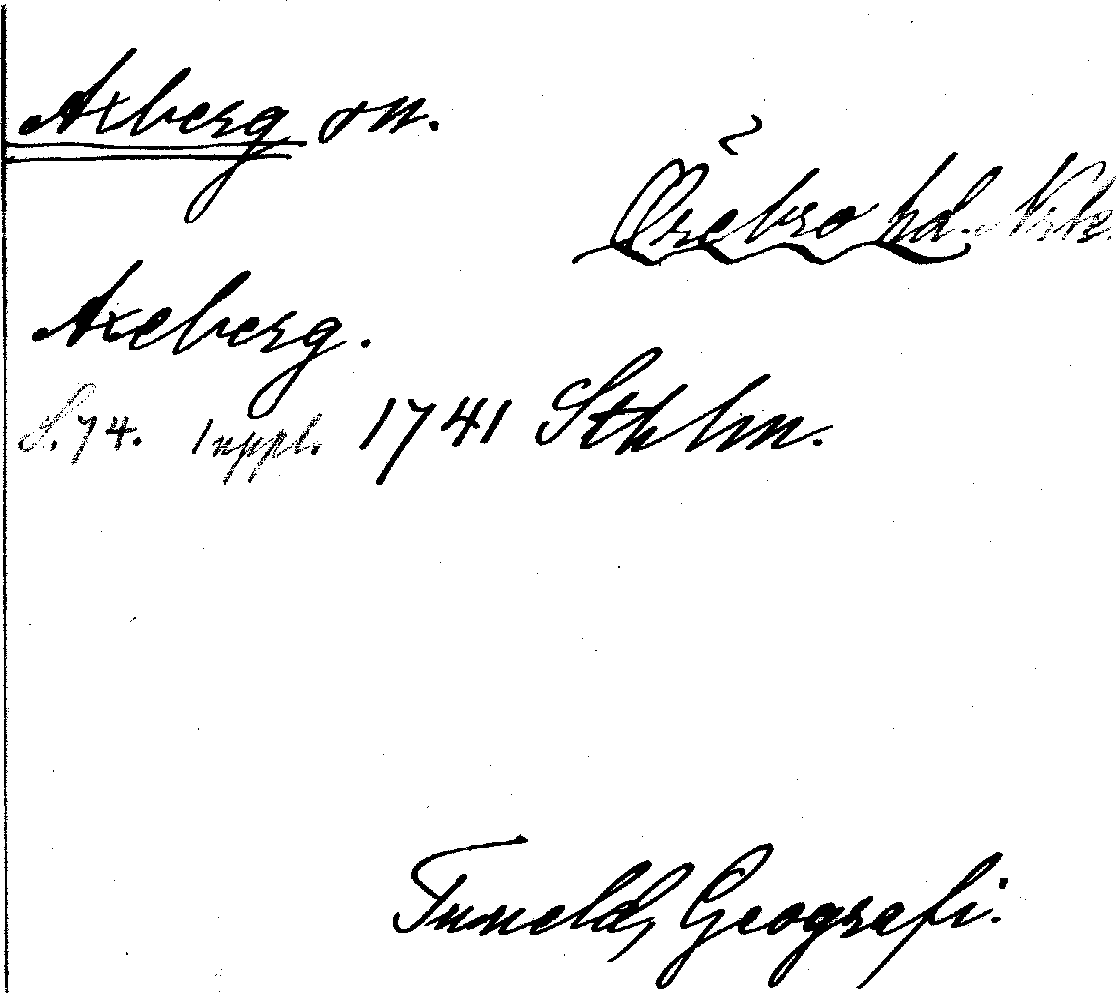 Axberg sn.
Örebro hd. Nrke.
Axeberg.
S. 74. 1 uppl. 1741 Sthlm.
Tunelds Geografi.